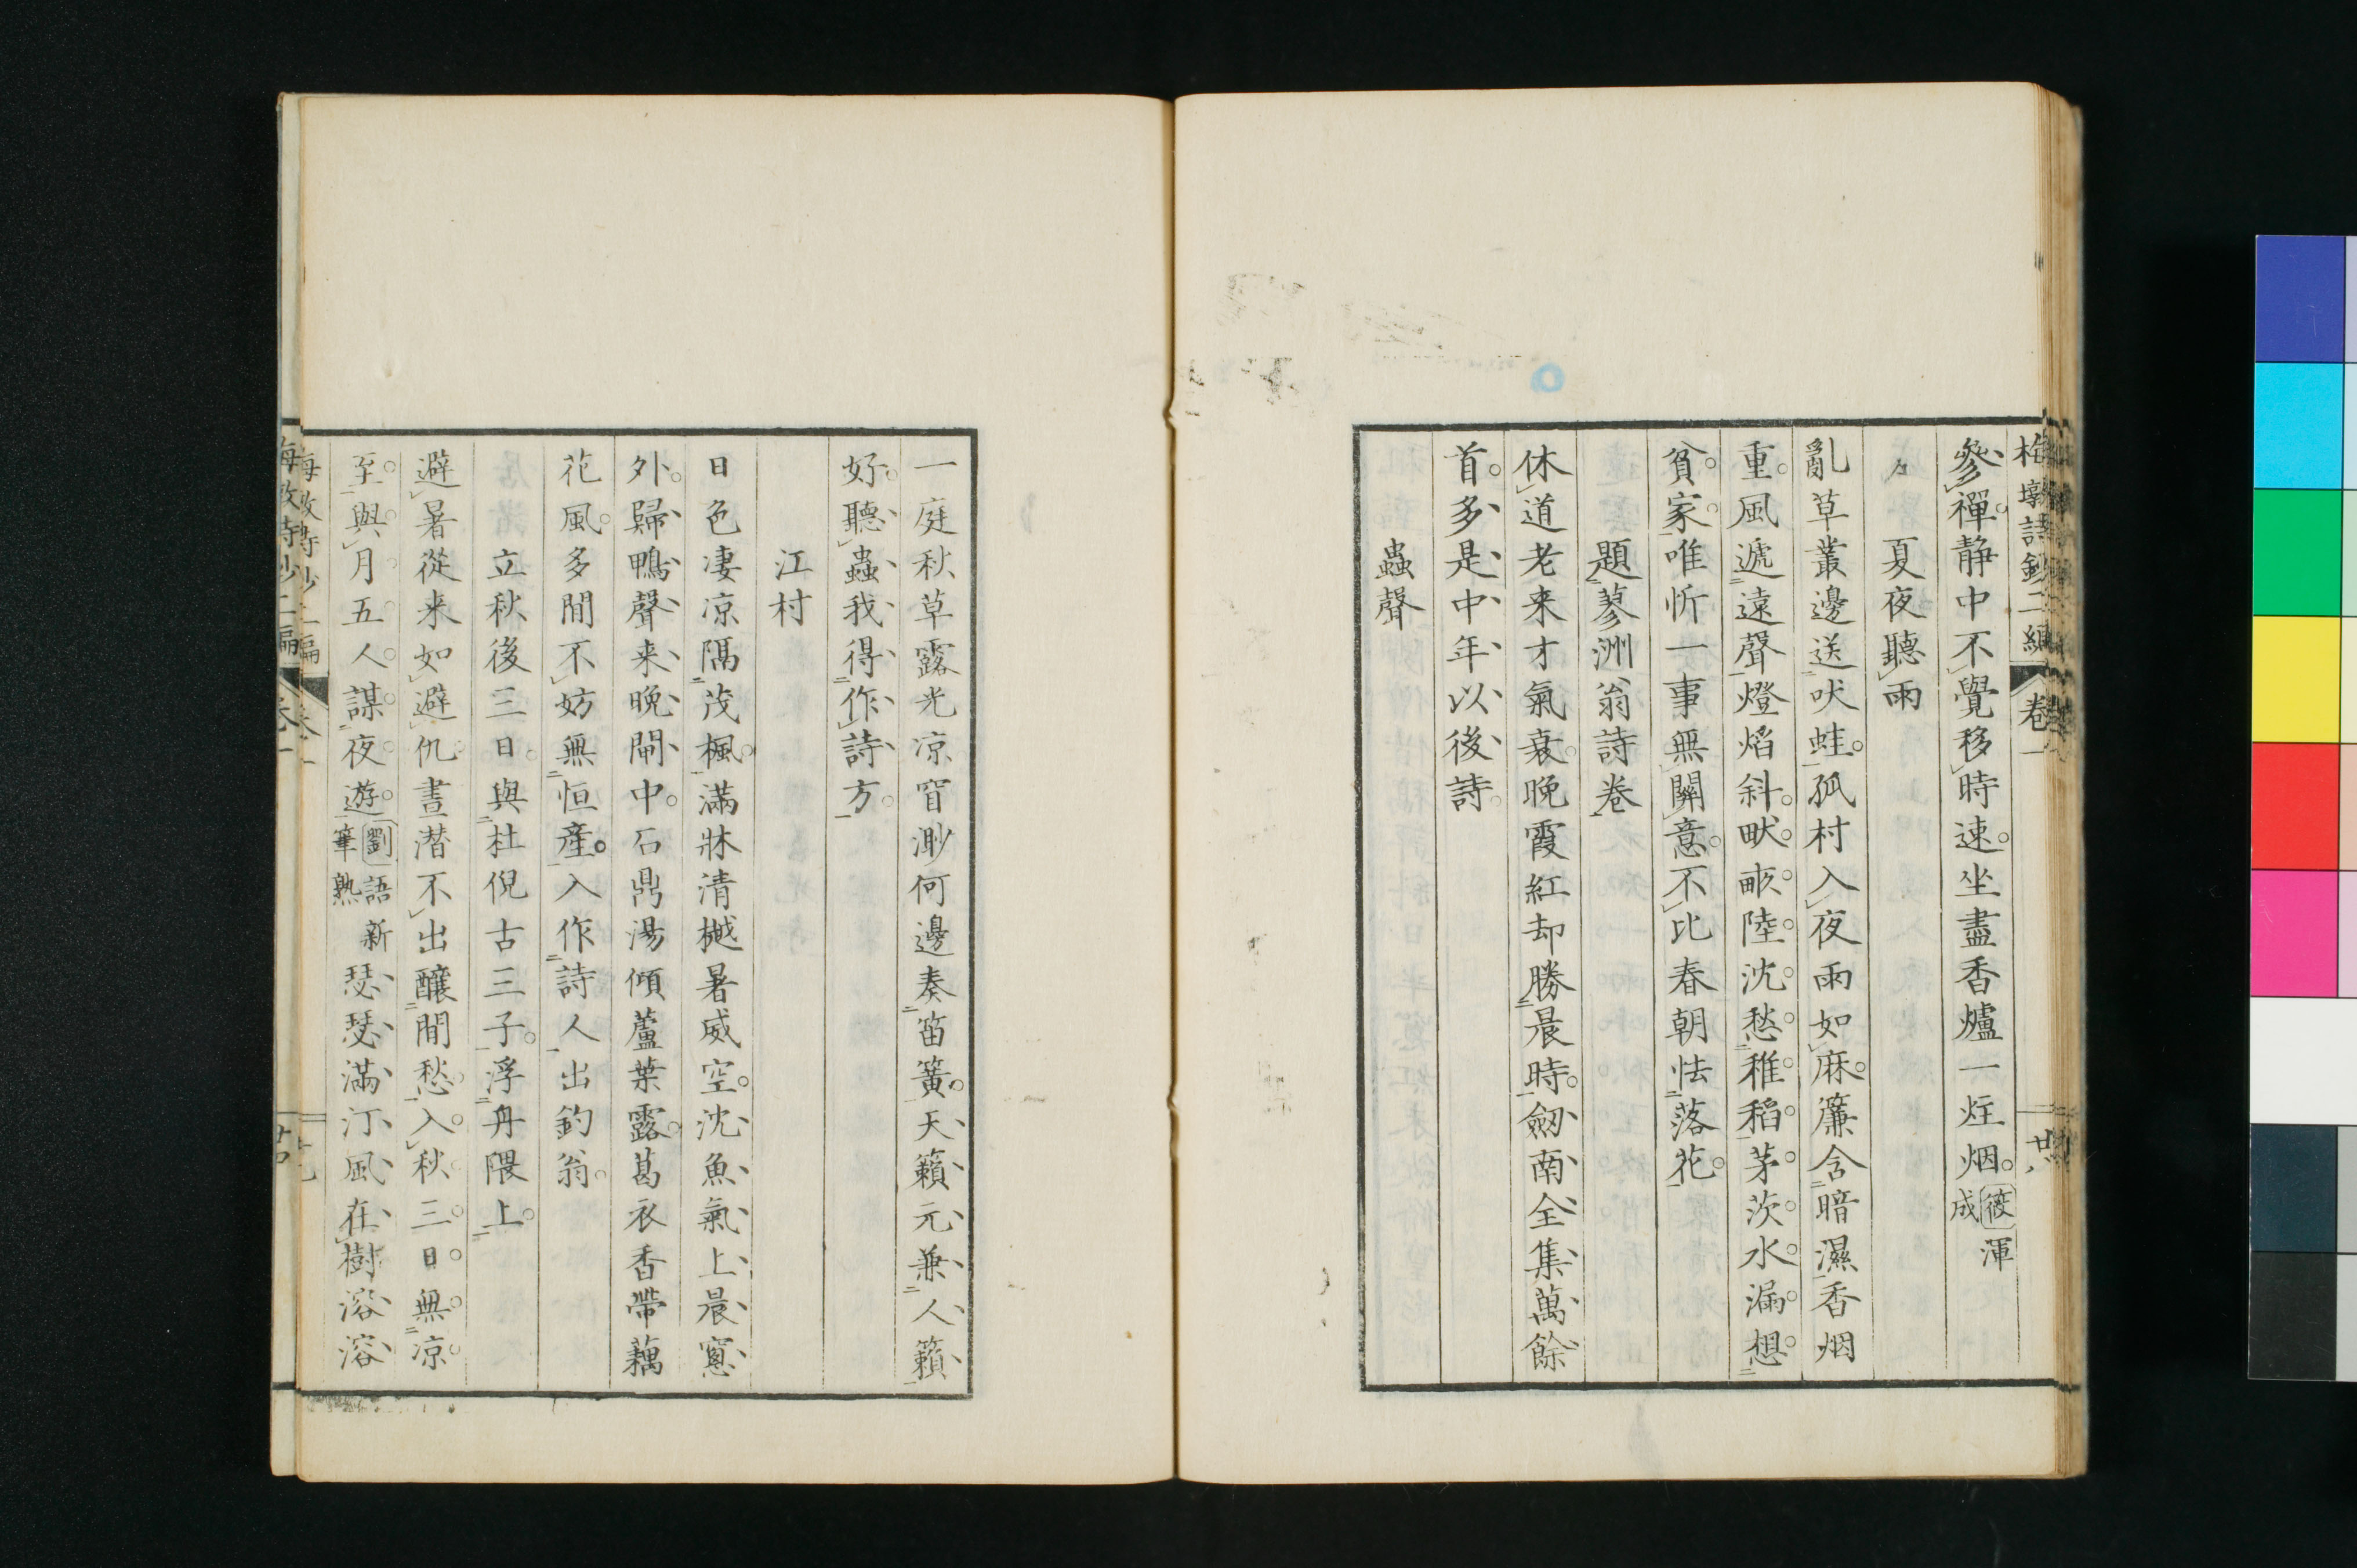 梅墩詩鈔二編 卷一
參禪静中不覺移時速坐盡香爐一炷烟 筱 渾成
夏夜聽雨
亂草叢邊送吠蛙孤村入夜雨如麻簾含暗濕香烟
重風遞遠聲燈焰斜畎畝陸沈愁稚稻茅茨水漏想
貧家唯忻一事無關意不比春朝怯落花
題蓼洲翁詩卷
休道老来才氣衰晚霞紅却勝晨時劔南全集萬餘
首多是中年以後詩
蟲聲
一庭秋草露光凉窅渺何邊奏笛簧天籟元兼人籟
好聽蟲我得作詩方
江村
日色凄凉隔茂楓滿牀清樾暑威空沈魚氣上晨窻
外歸鴨聲来晚閘中石鼎湯傾蘆葉露葛衣香帶藕
花風多間不妨無恒産入作詩人出釣翁
立秋後三日與杜倪古三子浮舟隈上
避暑從来如避仇晝潜不出釀間愁入秋三日無凉
至與月五人謀夜遊 劉 語新筆熟 瑟瑟滿汀風在樹溶溶